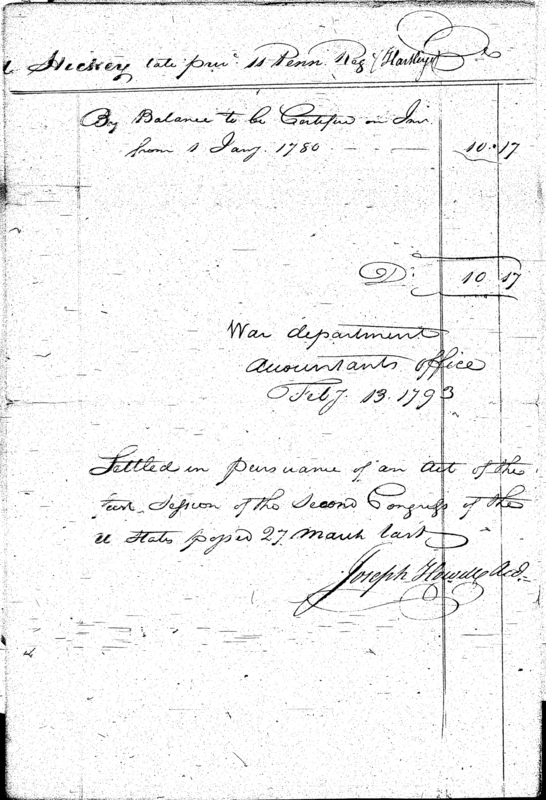 Hickey late priv. 11 Penn Reg (Hartleys) Cr.
By Balance to be Certified on Int.
from 1 Jany. 1780 10. 17
D. 10 17
War department
Accountants office
Feby. 13. 1793
Settled in pursuance of an Act of the
first Session of the Second Congress of the
U States passed 27 March last
Joseph Howell Act.